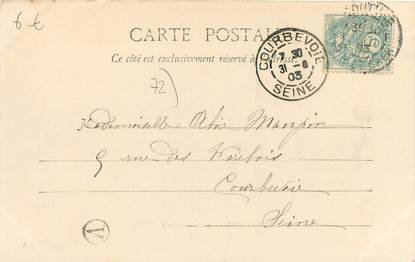 6 €
CARTE POSTALE
Ce côté est exclusivement réservé à l'adresse
COURBEVOIE
7 30
31 - 8
03
SEINE
72)
Mademoiselle
5 rue des
Courbevoie
Seine
A